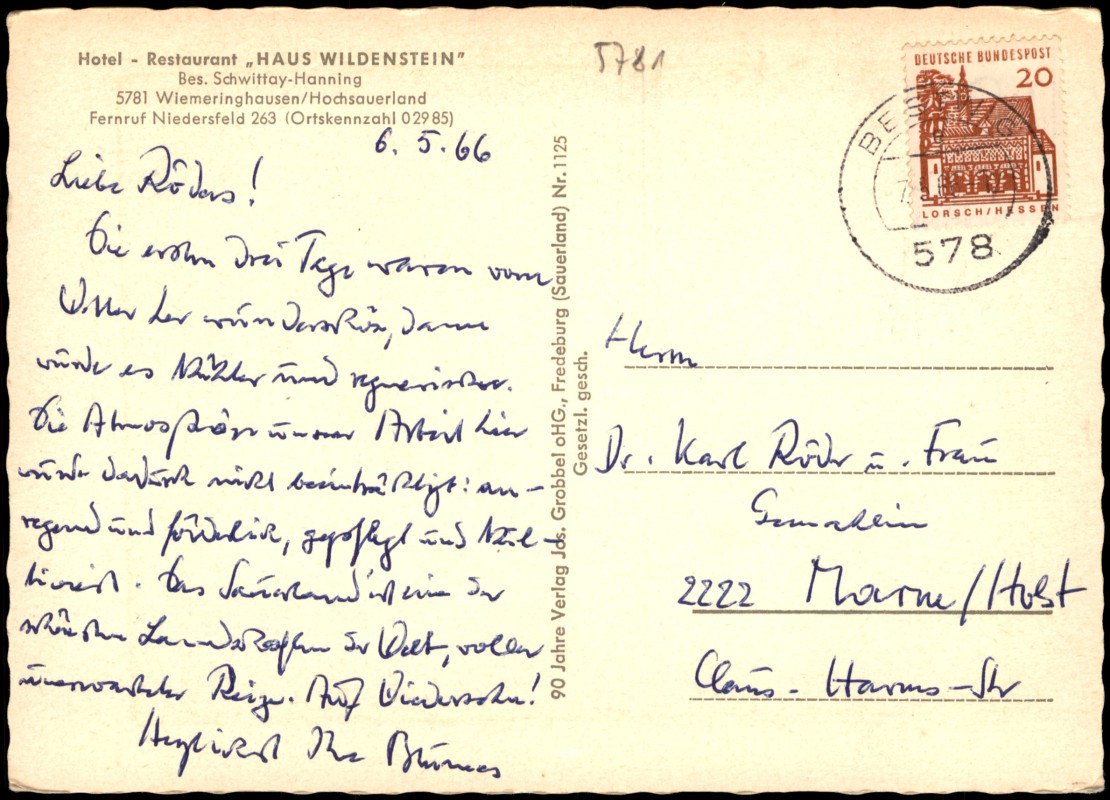 Hotel - Restaurant „HAUS WILDENSTEIN”
Bes. Schwittay-Hanning
5781 Wiemeringhausen/Hochsauerland
Fernruf Niedersfeld 263 (Ortskennzahl 02985)
5781
6. 5. 66
Liebe Röders!
Die ersten drei Tage waren vom
Wetter her wunderschön, dann
wurde es kühler und regnerischer.
Die Atmosphäre unserer Arbeit hier
wurde dadurch nicht beeinträchtigt: an-
regend und förderlich, gepflegt und kul-
tiviert. Das Sauerland ist eine der
schönsten Landschaften der Welt, voller
unerwarteter Reize. Auf Wiedersehn!
Herzlichst Ihre
90 Jahre Verlag Jos. Grobbel oHG., Fredeburg (Sauerland) Nr. 1125
Gesetzl. gesch.
DEUTSCHE BUNDESPOST
20
LORSCH/HESSEN
BESTWIG
578
Herrn
Dr. Karl Röder u. Frau
Gemahlin
2222 Marne/Holst
Claus-Harms-Str